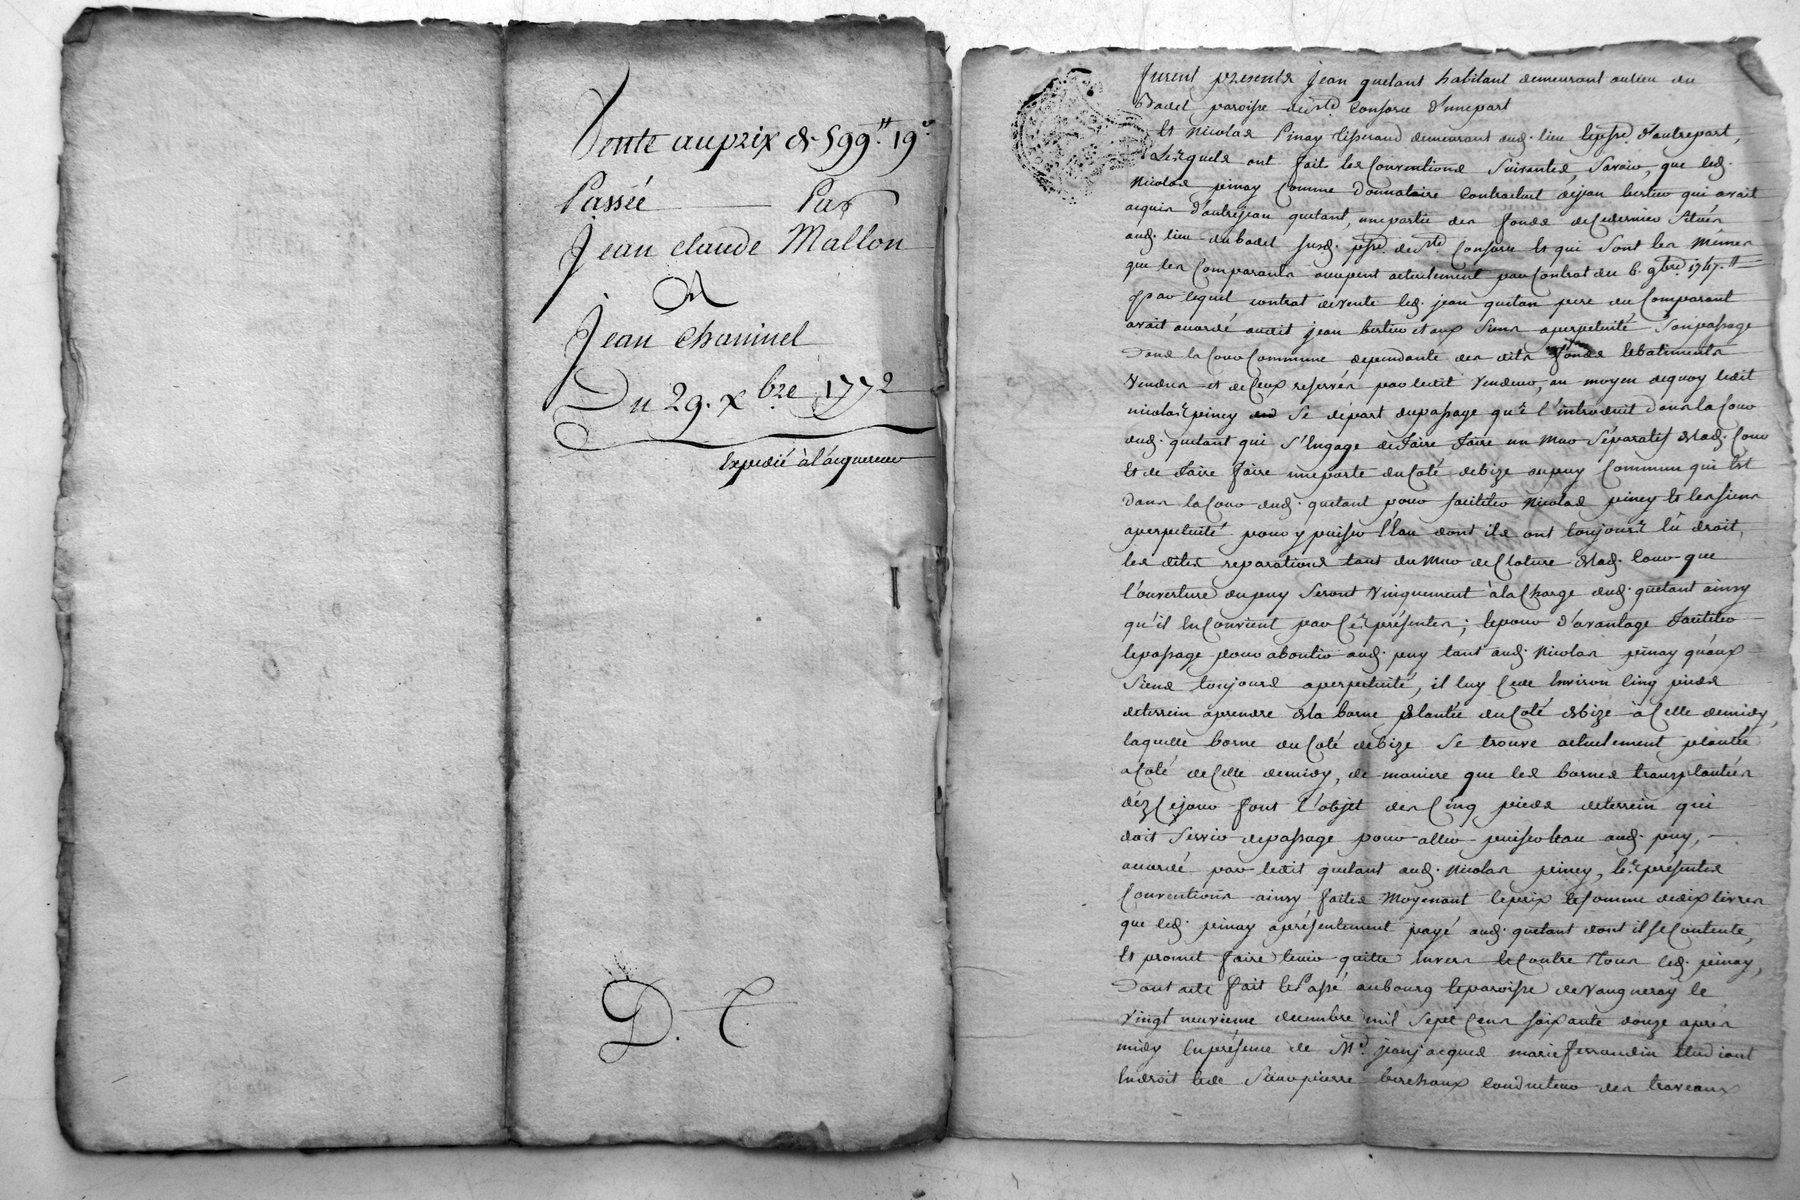 Vente au prix de 599ᴴ 19ˢ
Passée Par
Jean claude Mallon
A
Jean Chaninel
Du 29. xbre 1772
Expedié à l'acquereur
D. C.
furent presents jean quetant habitant demeurant au lieu du
badel paroisse de ste Consorce d'unepart
Et Nicolas Pinay tisserand demeurant aud. lieu & psse d'autrepart,
Lesquels ont fait les Conventions Suivantes, Savoir, que led.
Nicolas pinay Comme Donnataire Contractuel de jean bertier qui avait
acquis d'autre jean quetant, une partie des fonds de Ce dernier Situés
aud. lieu du badel susd. psse de ste Consorce Et qui Sont les Mêmes
que les Comparants occupent actuelement par Contrat du 6. 9bre 1747.
par lequel contrat de vente led. jean quetan pere du Comparant
avait accordé audit jean bertier et aux Siens a perpetuité Son passage
dans la Cour Commune dependante des dits fonds & batiments
Vendus et de Ceux reservés par ledit Vendeur, au moyen de quoy ledit
nicolas piney Se départ du passage qu'il introduit dans la Cour
dud. quetant qui S'Engage de faire faire un Mur Séparatif de lad. Cour
Et de faire faire une porte du Coté de bize au puy Commun qui Est
dans la Cour dud. quetant pour faciliter Nicolas piney Et les siens
a perpetuité pour y puiser l'Eau dont ils ont toujours Eû droit,
les dites reparations tant du Mur de Cloture de lad. Cour que
l'ouverture du puy Seront Uniquement à la Charge dud. quetant ainsy
qu'il En Convient par Ces présentes; & pour d'avantage faciliter
le passage pour aboutir aud. puy tant aud. Nicolas pinay qu'aux
Siens toujours a perpetuité, il luy Cede Environ Cinq pieds
de terrein a prendre de la borne plantée du Coté de bize à Celle de midy,
laquelle borne du Coté de bize Se trouve actuelement plantée
a Coté de Celle de midy, de maniere que les bornes transplantées
déz Ce jour font l'objet des Cinq pieds de terrein qui
doit Servir de passage pour aller puiser l'eau aud. puy,
accordé par ledit quetant aud. Nicolas piney, les présentes
Conventions ainsy faites Moyenant le prix & somme de dix livres
que led. pinay a présentement payé aud. quetant dont il se Contente,
Et promet faire tenir quitte Envers & Contre Tous led. pinay,
Dont acte fait & Passé au bourg & paroisse de Vaugneray le
Vingt neuvieme decembre mil Sept Cens soixante douze après
midy En présence de Mr. jean jacques marie ferrandin Etudiant
En droit & de Sieur pierre berchoux Conducteur des traveaux